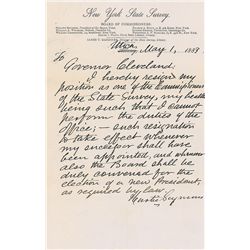 New York State Survey.
BOARD OF COMMISSIONERS.
Utica, May 1, 1883
To
Governor Cleveland.
I hereby resign my
position as one of the Commissioners
of the State Survey, my health
being such that I cannot
perform the duties of the
office; — such resignation
to take effect whenever
my successor shall have
been appointed, and whenever
also the Board shall be
duly convened for the
election of a new President,
as required by law.
Horatio Seymour